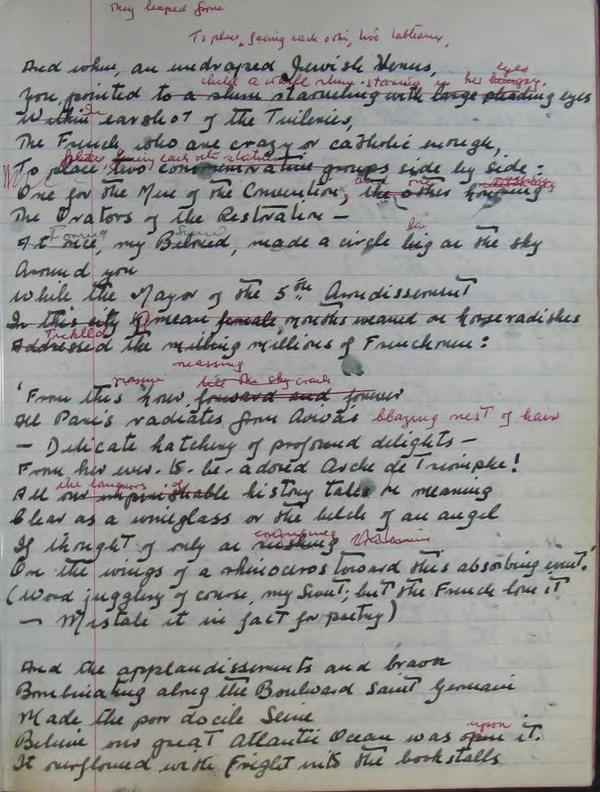 They leaped from
To place, facing each other, two tableaux,
And when, an undraped Jewish Venus,
child a
eyes
You pointed to a slum starveling with large pleading eyes
Within earshot of the Tuileries,
The French who are crazy or catholic enough,
place facing each other
To place two commemorative groups side by side -
One for the Men of the Convention, the other honouring
The Orators of the Restoration —
Forming
At once, my Beloved, made a circle big as the sky
Around you
While the Mayor of the 5th Arrondissement
In this city
mean female months weaned on horseradishes
Tickled
Addressed the milling millions of Frenchmen:
massing
till the sky cracks
'From this hour, forward and forever
All Paris radiates from Aviva's blazing nest of hair
— Delicate hatchery of profound delights —
From her ever-to-be-adored Arche de Triomphe!
the languors of
All our imperishable history takes on meaning
Clear as a wineglass or the belch of an angel
If thought of only as rushing
On the wings of a rhinoceros toward this absorbing event.'
(Word jugglery of course, my Sweet; but the French love it
— Mistake it in fact for poetry)
And the applaudissements and bravos
Bombinating along the Boulevard Saint Germain
Made the poor docile Seine
upon
Believe our great Atlantic Ocean was upon it.
It overflowed with fright into the bookstalls